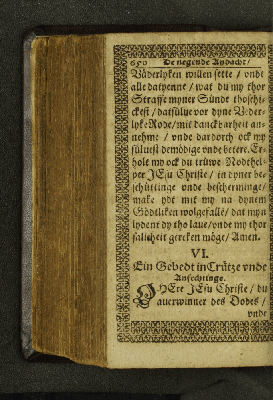 650 De negende Andacht /
Väderlyken willen sette / vnde
alle datyenne / wat du my thor
Straffe myner Sünde thoschi-
ckest / datsülue vor dyne Väder-
lyke Rode / mit danckbarheit an-
nehme / vnde dardorch ock my
sülucst demödige vnde betere. Er-
holt my ock du trüwe Nodthel-
per JEsu Christe / in dyner be-
schüttinge vnde bescherminge /
make ydt mit my na dynem
Gödtliken wolgefalle / dat myn
lydent dy tho laue / vnde my thor
salicheit gereken möge / Amen.
VI.
Ein Gebedt in Crütze vnde
Anfechtinge.
O HEre JEsu Christe / du
auerwinner des Dodes /
vnde